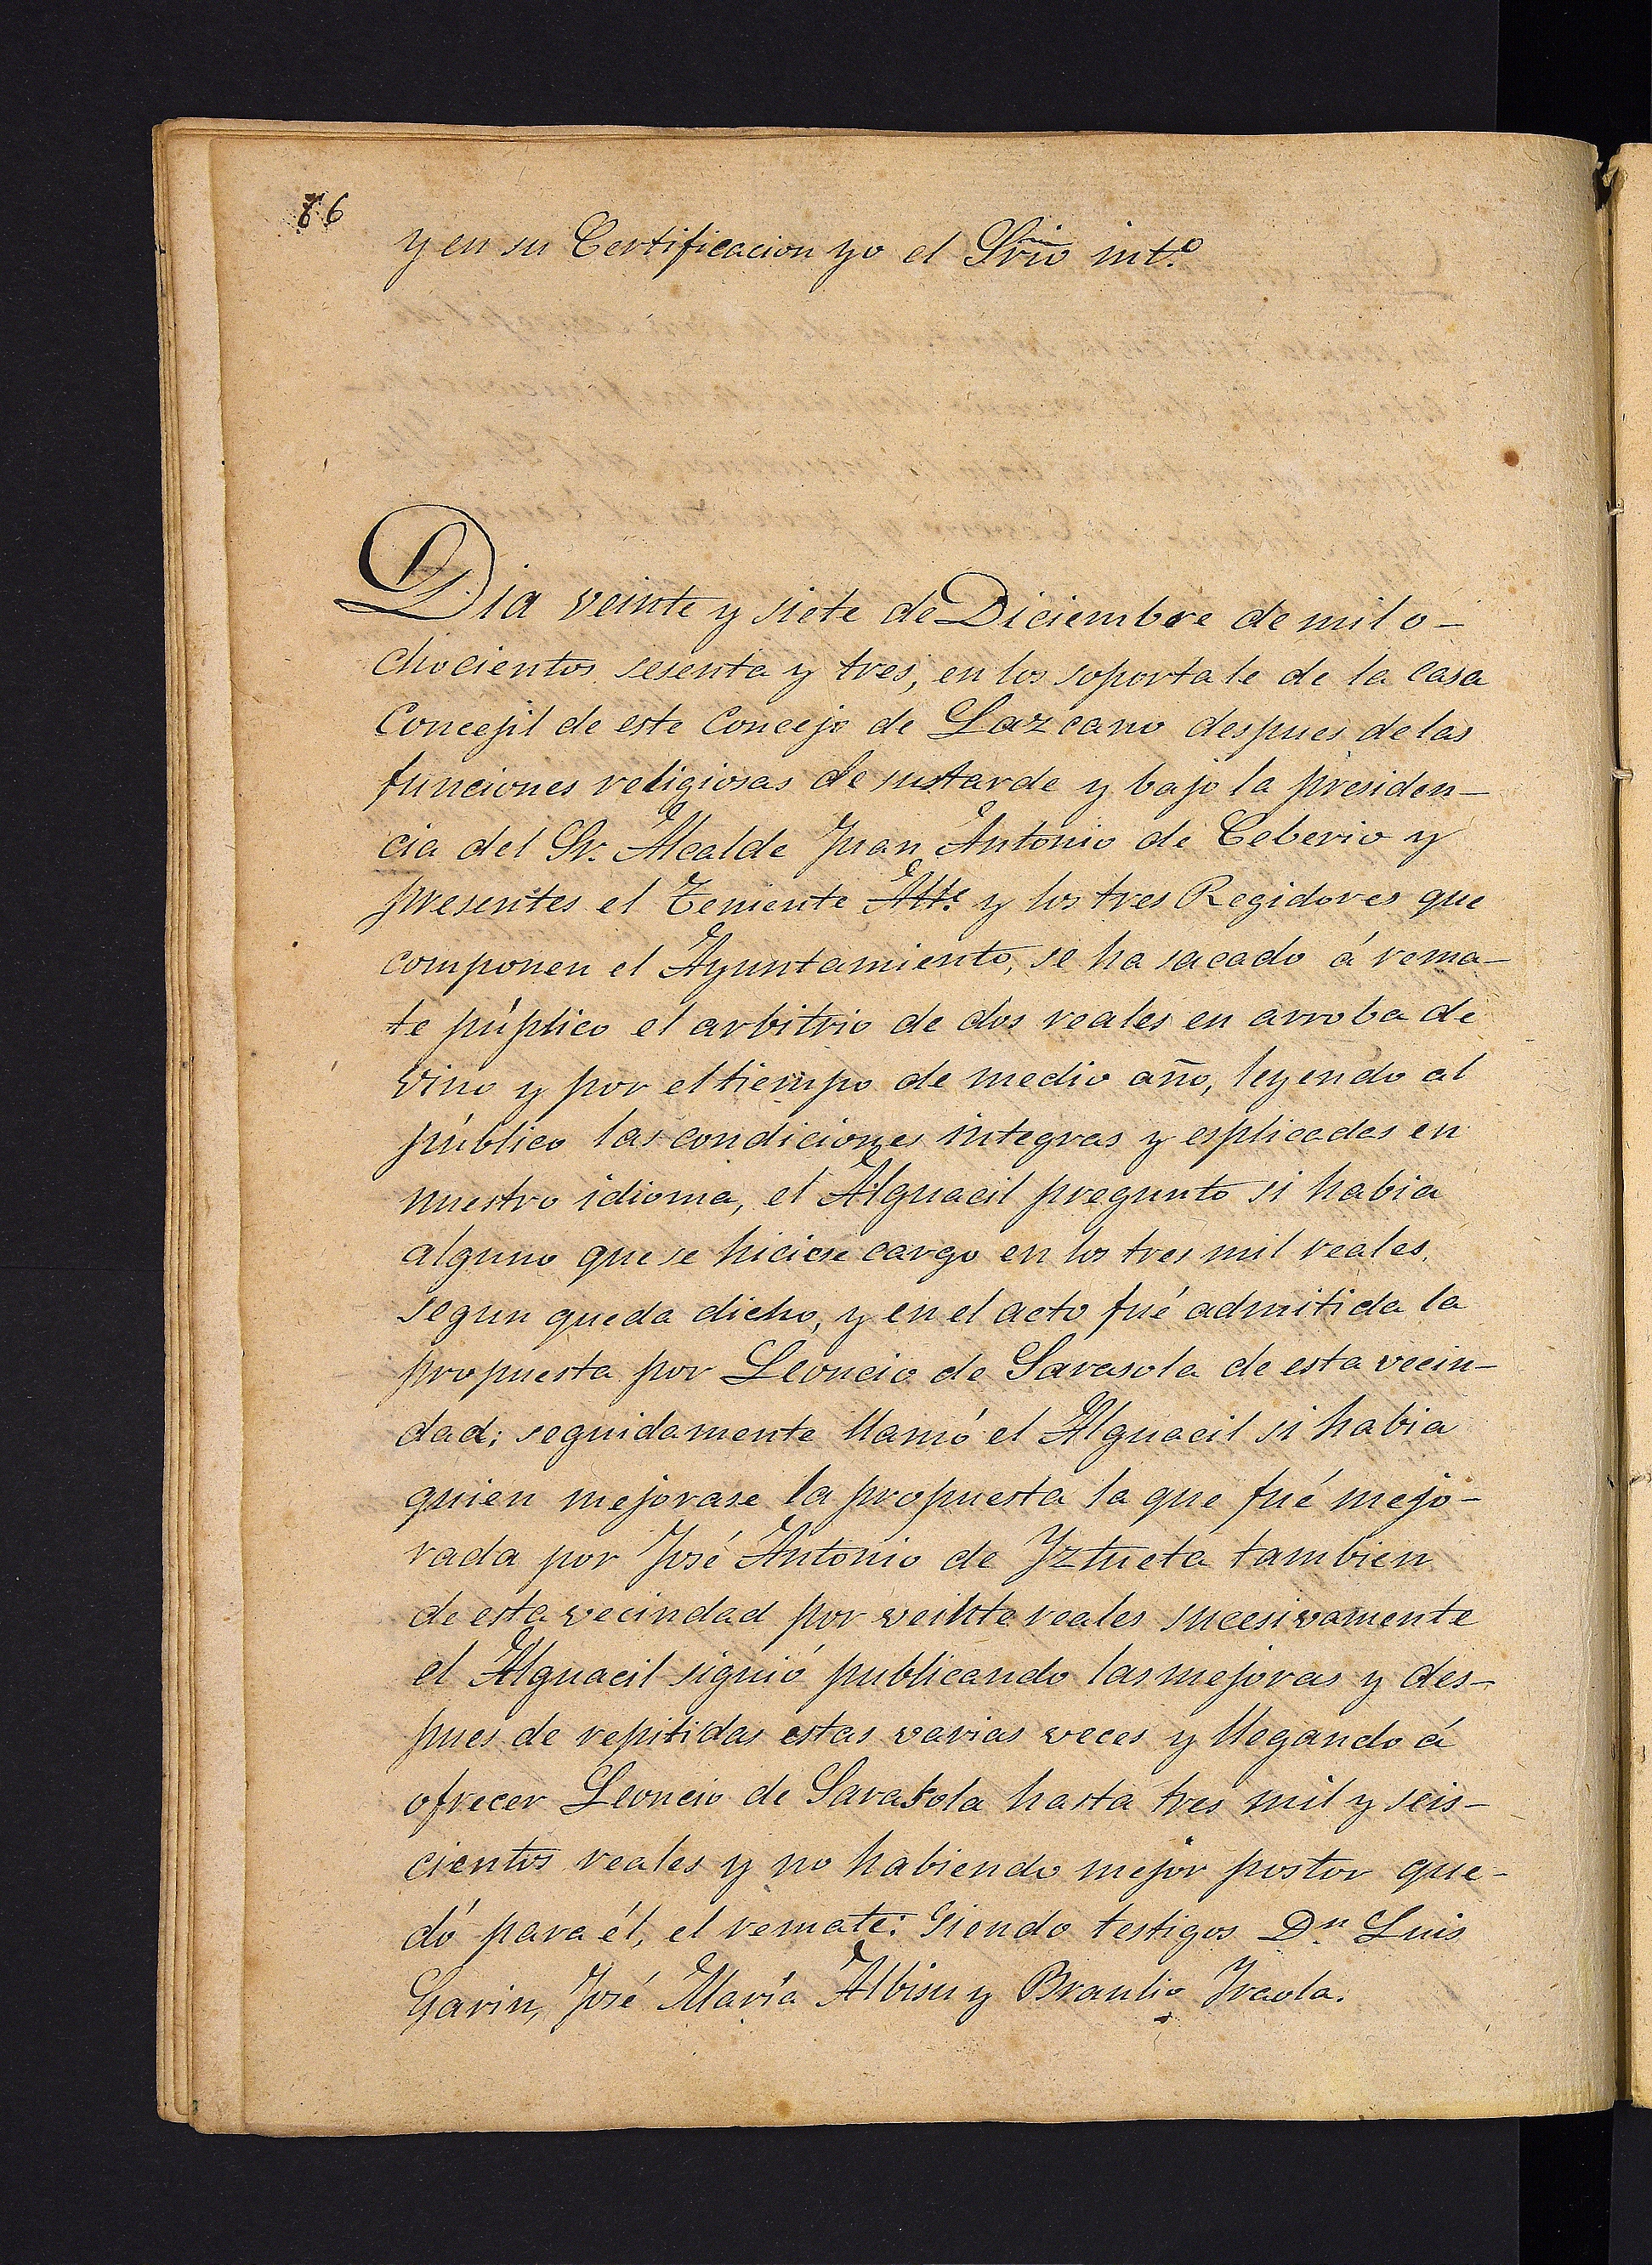 86
y en su Certificacion yo el Srio int.º
Dia veinte y siete de Diciembre de mil o-
chocientos sesenta y tres, en los soportale de la casa
Concejil de este Concejo de Lazcano despues de las
funciones religiosas de sustarde y bajo la presiden-
cia del Sr. Alcalde Juan Antonio de Ceberio y
presentes el Teniente Alte y los tres Regidores que
componen el Ayuntamiento, se ha sacado á rema-
te púplico el arbitrio de dos reales en arroba de
vino y por el tiempo de medio año, leyendo al
público las condiciones integras y esplicadas en
nuestro idioma, el Alguacil pregunto si habia
alguno que se hiciese cargo en los tres mil reales,
segun queda dicho, y en el acto fué admitida la
propuesta por Leoncio de Sarasola de esta vecin-
dad; seguidamente llamó el Alguacil si habia
quien mejorase la propuesta la que fué mejo-
rada por José Antonio de Yztueta tambien
de esta vecindad por veinte reales sucesivamente
el Alguacil siguió publicando las mejoras y des-
pues de repitidas estas varias veces y llegando á
ofrecer Leoncio de Sarasola hasta tres mil y seis-
cientos reales y no habiendo mejor postor que-
dó para él, el remate: Siendo testigos Dn Luis
Garin, José María Albisu y Braulio Yraola.